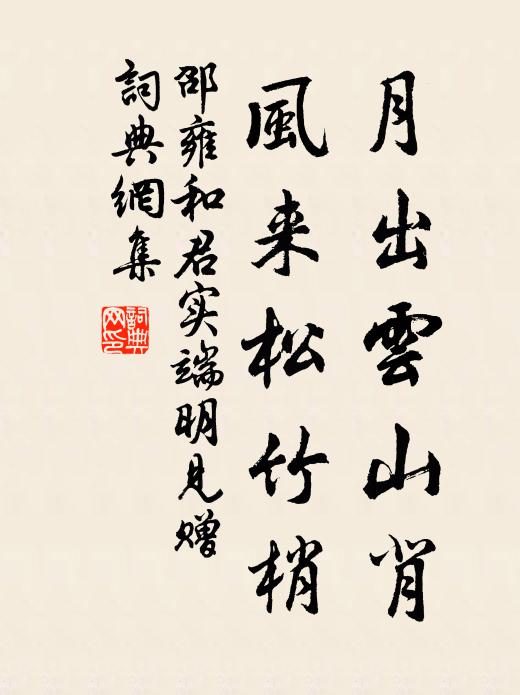 月出雲山背
風来松竹梢
邵雍和君实端明見赠
詞典網集
詞典网印